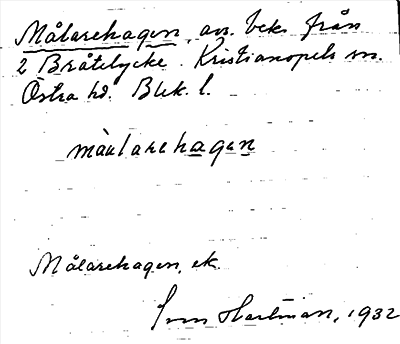 Målarehagen, avs. beke. från
2 Bråtelycke. Kristianopels sn.
Östra hd. Blek. l.
màularehagen
Målarehagen, ek.
Hartman, 1932